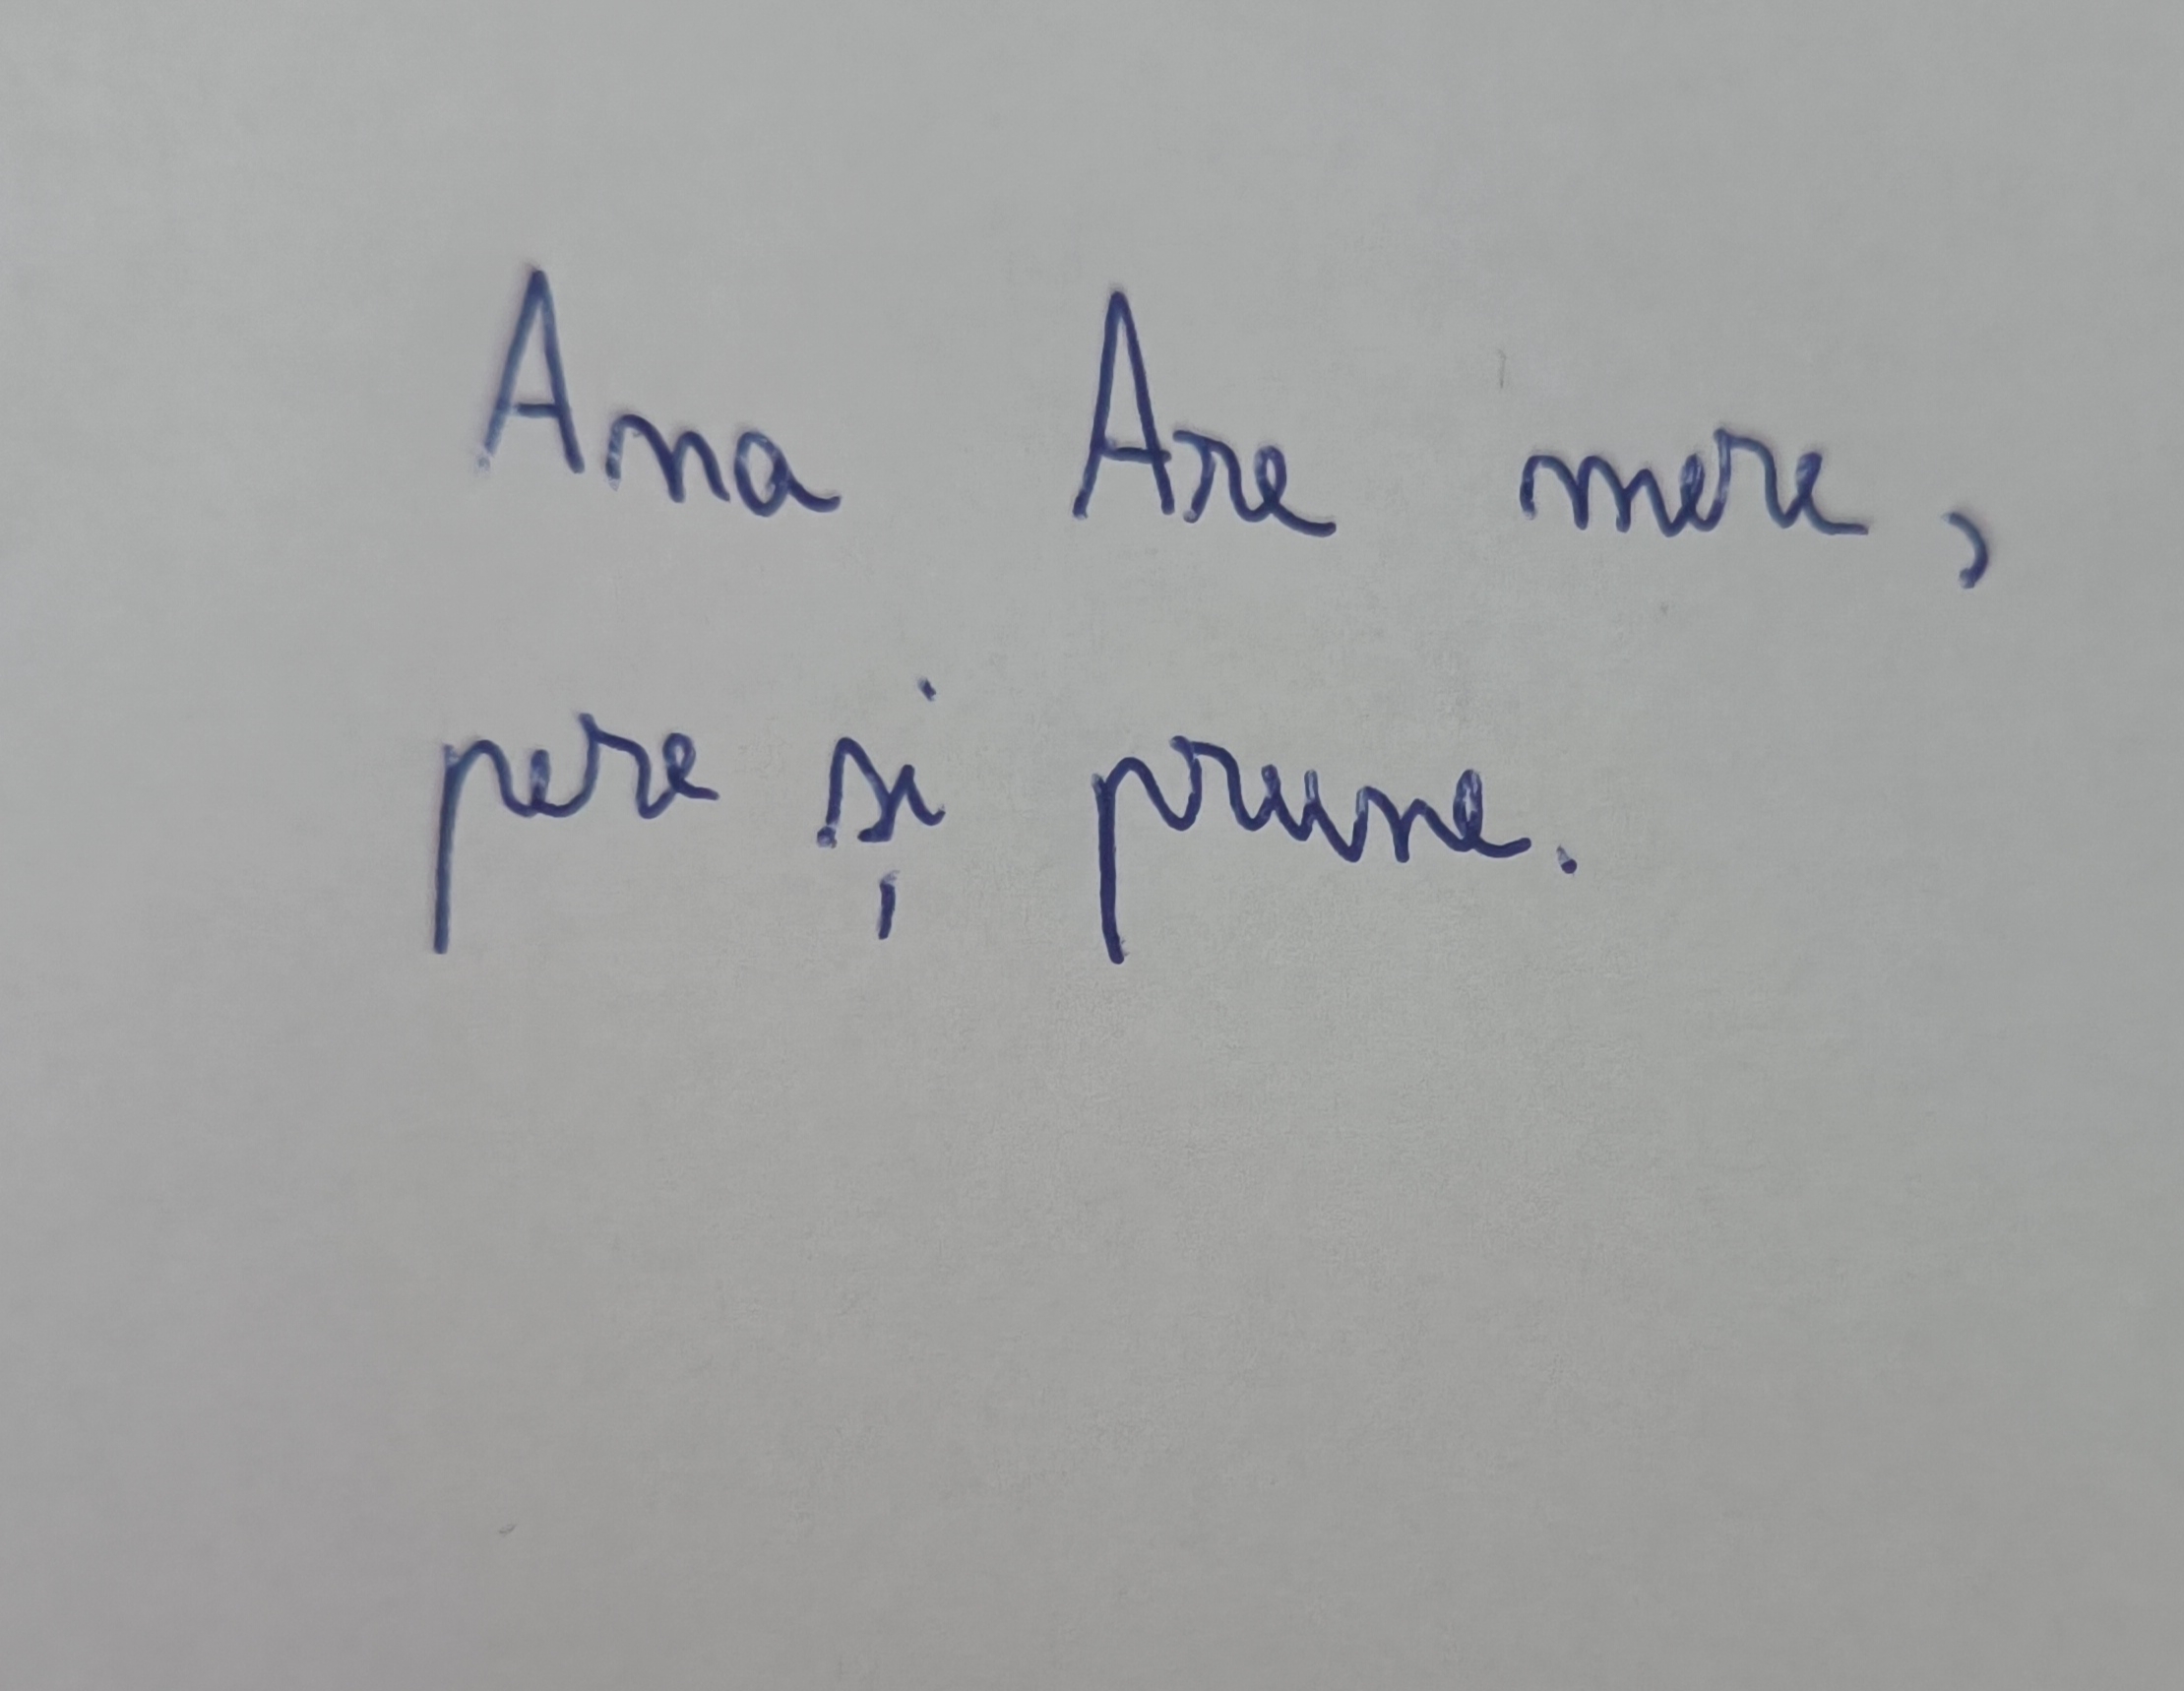 Ana Are mere,
pere și prune.